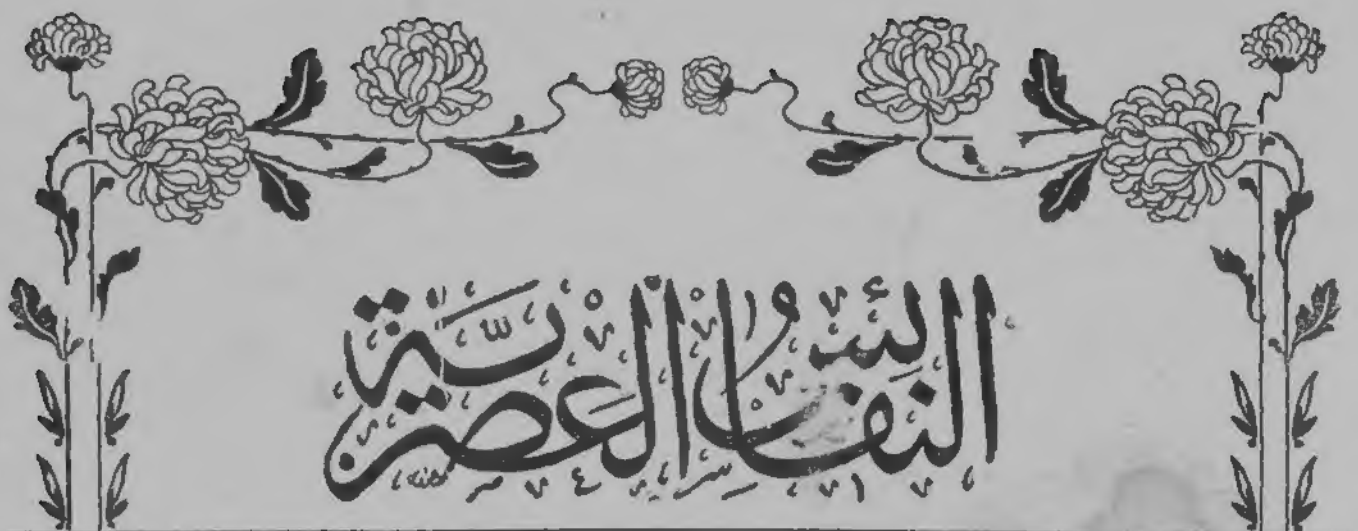 النَفائِسُ العَصْرِيَّة